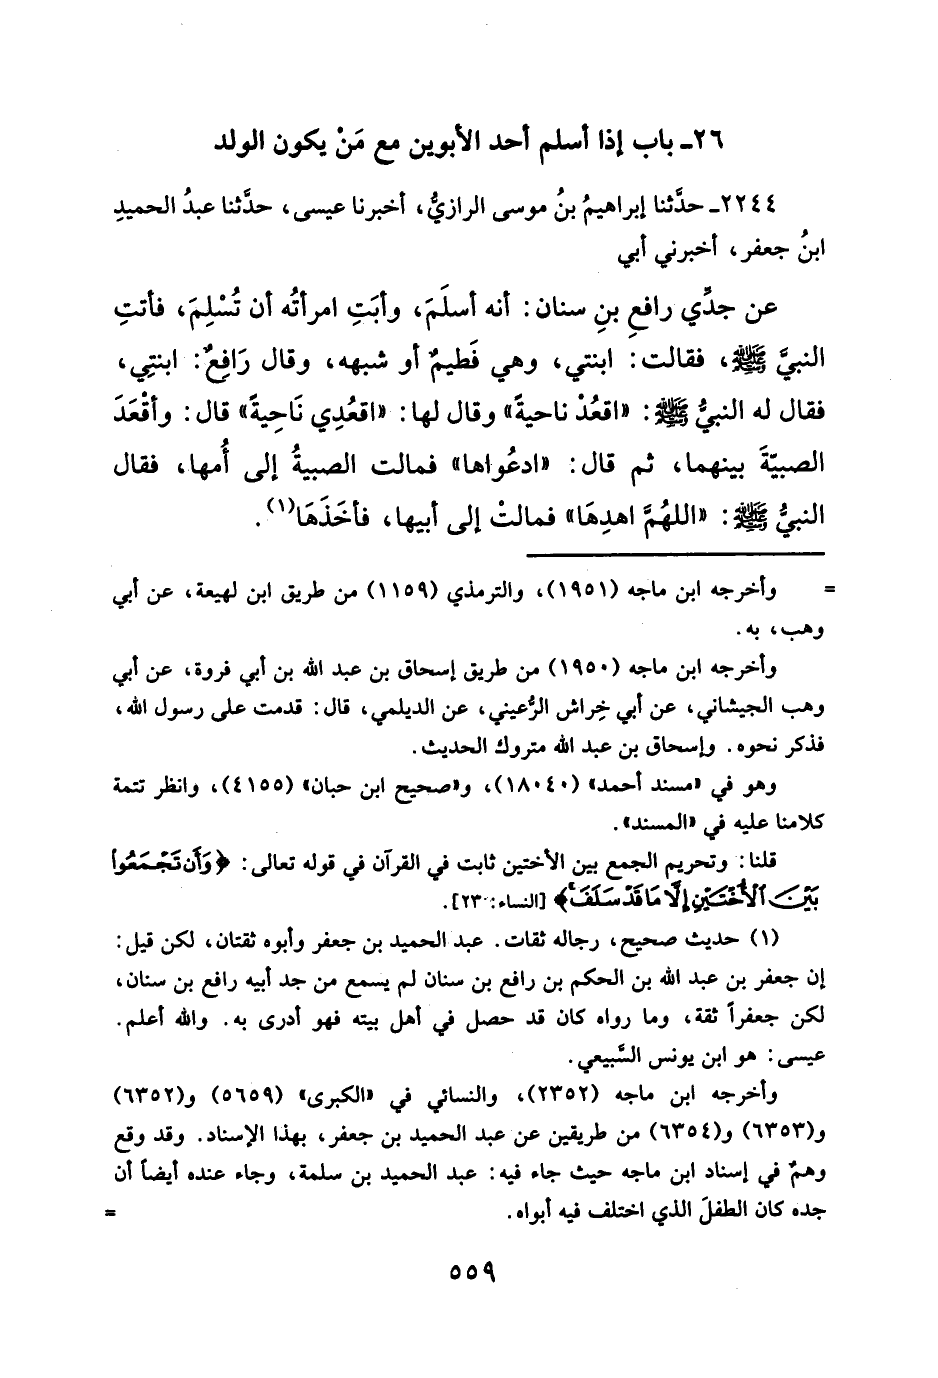 ٢٦- باب إذا أسلم أحد الأبوين مع مَنْ يكون الولد
٢٢٤٤- حدَّثنا إبراهيمُ بنُ موسى الرازيُّ، أخبرنا عيسى، حدَّثنا عبدُ الحميدِ
ابنُ جعفر، أخبرني أبي
عن جدِّي رافعِ بنِ سنان: أنه أسلَمَ، وأبَتِ امرأتُه أن تُسْلِمَ، فأتتِ
النبيَّ ﷺ، فقالت: ابنتي، وهي فَطيمٌ أو شبهه، وقال رَافِعٌ: ابنتِي،
فقال له النبيُّ ﷺ: «اقعُدْ ناحيةً» وقال لها: «اقعُدِي نَاحِيةً» قال: وأقْعَدَ
الصبيّةَ بينهما، ثم قال: «ادعُواها» فمالت الصبيةُ إلى أُمها، فقال
النبيُّ ﷺ: «اللهُمَّ اهدِهَا» فمالتْ إلى أبيها، فأخَذَهَا(١).
= وأخرجه ابن ماجه (١٩٥١)، والترمذي (١١٥٩) من طريق ابن لهيعة، عن أبي
وهب، به.
وأخرجه ابن ماجه (١٩٥٠) من طريق إسحاق بن عبد الله بن أبي فروة، عن أبي
وهب الجيشاني، عن أبي خِراش الرُّعيني، عن الديلمي، قال: قدمت على رسول الله،
فذكر نحوه. وإسحاق بن عبد الله متروك الحديث.
وهو في «مسند أحمد» (١٨٠٤٠)، و«صحيح ابن حبان» (٤١٥٥)، وانظر تتمة
كلامنا عليه في «المسند».
قلنا: وتحريم الجمع بين الأختين ثابت في القرآن في قوله تعالى: ﴿وَأَن تَجْمَعُوا
بَيْنَ ٱلْأُخْتَيْنِ إِلَّا مَا قَدْ سَلَفَ﴾ [النساء: ٢٣].
(١) حديث صحيح، رجاله ثقات. عبد الحميد بن جعفر وأبوه ثقتان، لكن قيل:
إن جعفر بن عبد الله بن الحكم بن رافع بن سنان لم يسمع من جد أبيه رافع بن سنان،
لكن جعفراً ثقة، وما رواه كان قد حصل في أهل بيته فهو أدرى به. والله أعلم.
عيسى: هو ابن يونس السَّبيعي.
وأخرجه ابن ماجه (٢٣٥٢)، والنسائي في «الكبرى» (٥٦٥٩) و(٦٣٥٢)
و(٦٣٥٣) و(٦٣٥٤) من طريقين عن عبد الحميد بن جعفر، بهذا الإسناد. وقد وقع
وهمٌ في إسناد ابن ماجه حيث جاء فيه: عبد الحميد بن سلمة، وجاء عنده أيضاً أن
جده كان الطفلَ الذي اختلف فيه أبواه. =
٥٥٩